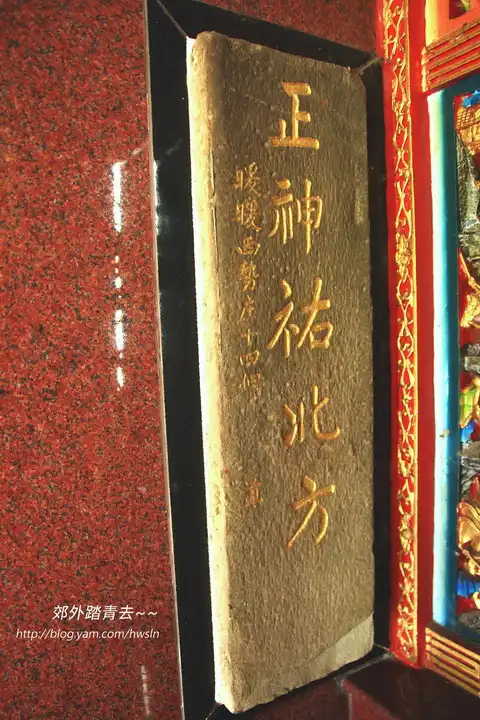 正神祐北方
暖暖西勢庄十四佃
郊外踏青去~~
http://blog.yam.com/hwsln